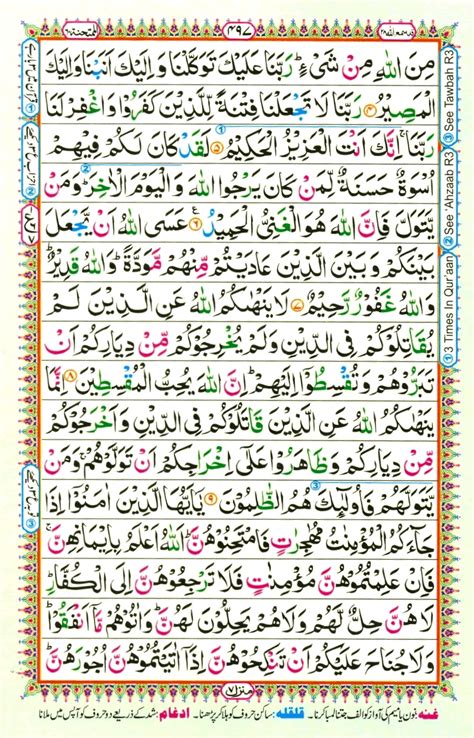 قد سمع الله ٢٨
٤٩٧
الممتحنة ٦٠
مِنَ اللّٰهِ مِنْ شَیْءٍ ؕ رَبَّنَا عَلَیْكَ تَوَكَّلْنَا وَاِلَیْكَ اَنَبْنَا وَاِلَیْكَ
الْمَصِیْرُ ۴ رَبَّنَا لَا تَجْعَلْنَا فِتْنَةً لِّلَّذِیْنَ كَفَرُوْا وَاغْفِرْ لَنَا
رَبَّنَا ۚ اِنَّكَ اَنْتَ الْعَزِیْزُ الْحَكِیْمُ ۵ لَقَدْ كَانَ لَكُمْ فِیْهِمْ
اُسْوَةٌ حَسَنَةٌ لِّمَنْ كَانَ یَرْجُوا اللّٰهَ وَالْیَوْمَ الْاٰخِرَ ؕ وَمَنْ
یَّتَوَلَّ فَاِنَّ اللّٰهَ هُوَ الْغَنِیُّ الْحَمِیْدُ ۶ عَسَی اللّٰهُ اَنْ یَّجْعَلَ
بَیْنَكُمْ وَبَیْنَ الَّذِیْنَ عَادَیْتُمْ مِّنْهُمْ مَّوَدَّةً ؕ وَاللّٰهُ قَدِیْرٌ ؕ
وَاللّٰهُ غَفُوْرٌ رَّحِیْمٌ ۷ لَا یَنْهٰىكُمُ اللّٰهُ عَنِ الَّذِیْنَ لَمْ
یُقَاتِلُوْكُمْ فِی الدِّیْنِ وَلَمْ یُخْرِجُوْكُمْ مِّنْ دِیَارِكُمْ اَنْ
تَبَرُّوْهُمْ وَتُقْسِطُوْۤا اِلَیْهِمْ ؕ اِنَّ اللّٰهَ یُحِبُّ الْمُقْسِطِیْنَ ۸ اِنَّمَا
یَنْهٰىكُمُ اللّٰهُ عَنِ الَّذِیْنَ قَاتَلُوْكُمْ فِی الدِّیْنِ وَاَخْرَجُوْكُمْ
مِّنْ دِیَارِكُمْ وَظَاهَرُوْا عَلٰۤی اِخْرَاجِكُمْ اَنْ تَوَلَّوْهُمْ ۚ وَمَنْ
یَّتَوَلَّهُمْ فَاُولٰٓىِٕكَ هُمُ الظّٰلِمُوْنَ ۹ یٰۤاَیُّهَا الَّذِیْنَ اٰمَنُوْۤا اِذَا
جَآءَكُمُ الْمُؤْمِنٰتُ مُهٰجِرٰتٍ فَامْتَحِنُوْهُنَّ ؕ اَللّٰهُ اَعْلَمُ بِاِیْمَانِهِنَّ ۚ
فَاِنْ عَلِمْتُمُوْهُنَّ مُؤْمِنٰتٍ فَلَا تَرْجِعُوْهُنَّ اِلَی الْكُفَّارِ ؕ
لَا هُنَّ حِلٌّ لَّهُمْ وَلَا هُمْ یَحِلُّوْنَ لَهُنَّ ؕ وَاٰتُوْهُمْ مَّاۤ اَنْفَقُوْا ؕ
وَلَا جُنَاحَ عَلَیْكُمْ اَنْ تَنْكِحُوْهُنَّ اِذَاۤ اٰتَیْتُمُوْهُنَّ اُجُوْرَهُنَّ ؕ
منزل ۷
① 3 Times In Qur'aan ② See 'Ahzaab R3 ③ See Tawbah R3
غنہ: نون یا میم کی آواز کو الف جتنا لمبا کرنا۔ قلقلہ: ساکن حروف کو ہلا کر پڑھنا۔ ادغام: شد کے ذریعے دو حروف کو آپس میں ملانا